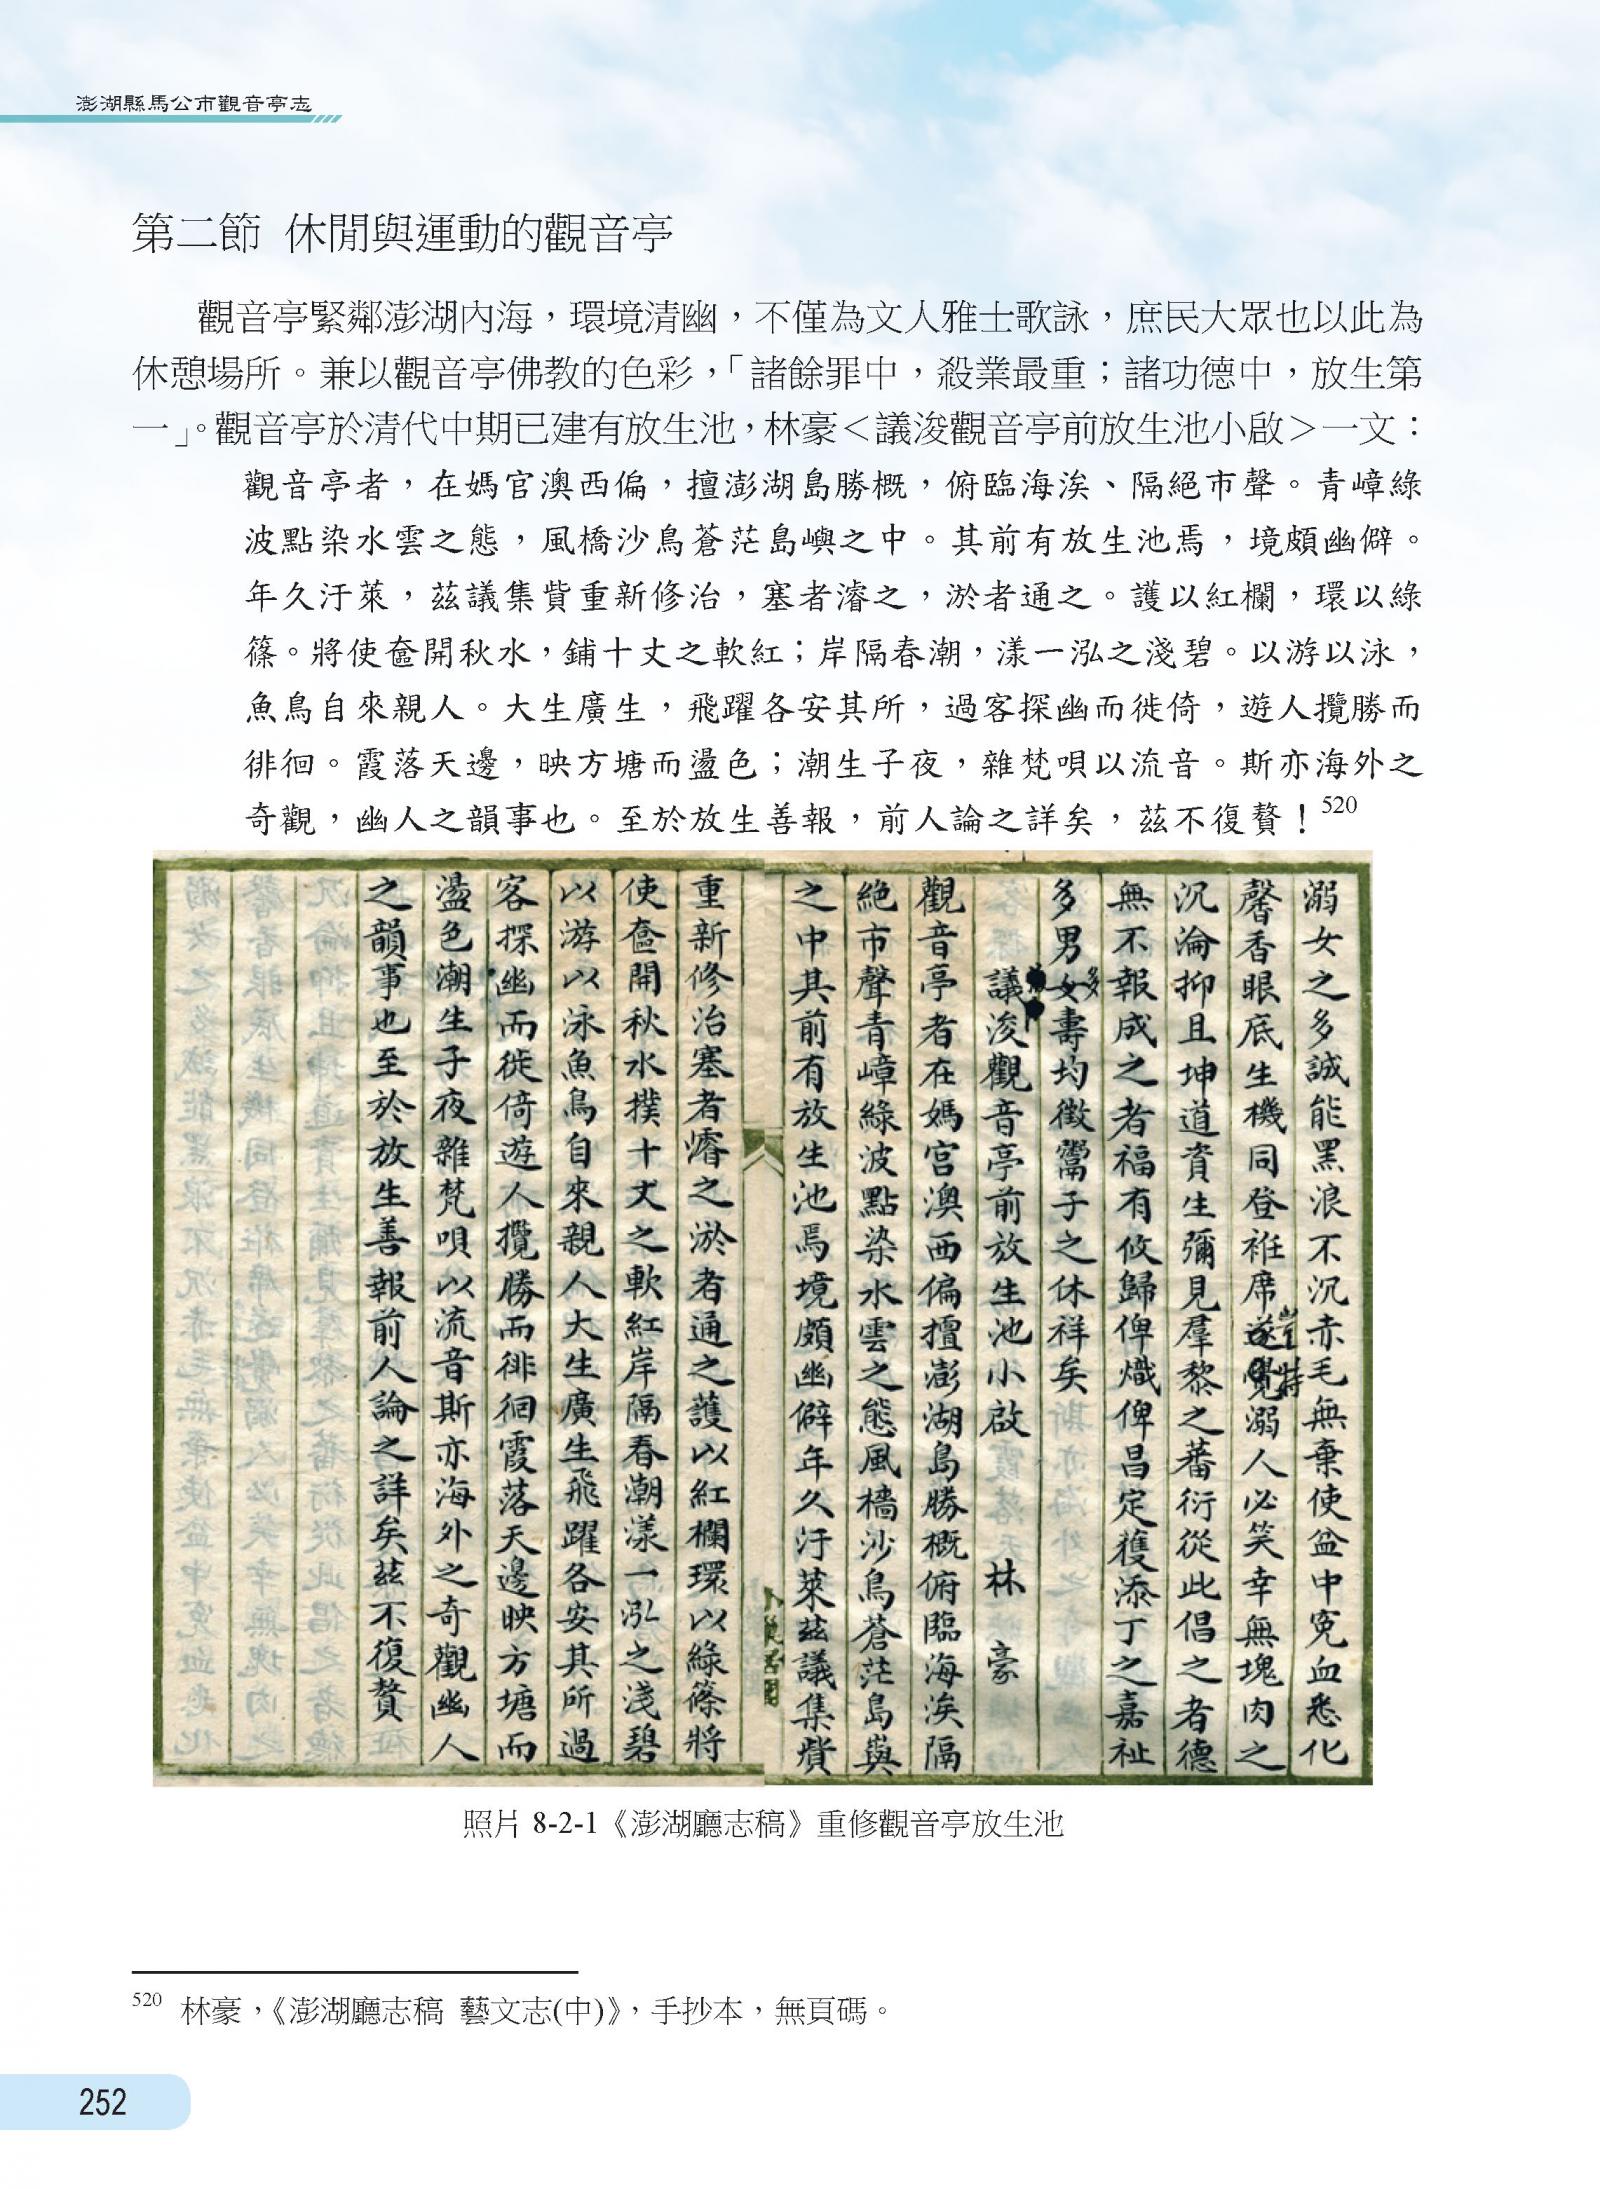 澎湖縣馬公市觀音亭志
第二節 休閒與運動的觀音亭
觀音亭緊鄰澎湖內海，環境清幽，不僅為文人雅士歌詠，庶民大眾也以此為
休憩場所。兼以觀音亭佛教的色彩，「諸餘罪中，殺業最重；諸功德中，放生第
一」。觀音亭於清代中期已建有放生池，林豪＜議浚觀音亭前放生池小啟＞一文：
觀音亭者，在媽官澳西偏，擅澎湖島勝概，俯臨海涘、隔絕市聲。青嶂綠
波點染水雲之態，風橋沙鳥蒼茫島嶼之中。其前有放生池焉，境頗幽僻。
年久汙萊，茲議集貲重新修治，塞者濬之，淤者通之。護以紅欄，環以綠
篠。將使奩開秋水，鋪十丈之軟紅；岸隔春潮，漾一泓之淺碧。以游以泳，
魚鳥自來親人。大生廣生，飛躍各安其所，過客探幽而徙倚，遊人攬勝而
徘徊。霞落天邊，映方塘而盪色；潮生子夜，雜梵唄以流音。斯亦海外之
奇觀，幽人之韻事也。至於放生善報，前人論之詳矣，茲不復贅！520
溺女之多誠能黑浪不沉赤毛無棄使盆中冤血悉化
馨香眼底生機同登袵席豈特溺人必笑幸無塊肉之
沉淪抑且坤道資生彌見羣黎之蕃衍從此倡之者德
無不報成之者福有攸歸俾熾俾昌定獲添丁之嘉祉
多男多壽均徵鬻子之休祥矣
議浚觀音亭前放生池小啟 林豪
觀音亭者在媽宮澳西偏擅澎湖島勝概俯臨海涘隔
絕市聲青嶂綠波點染水雲之態風檣沙鳥蒼茫島與
之中其前有放生池焉境頗幽僻年久汙萊茲議集貲
重新修治塞者濬之淤者通之護以紅欄環以綠篠將
使奩開秋水撲十丈之軟紅岸隔春潮漾一泓之淺碧
以游以泳魚鳥自來親人大生廣生飛躍各安其所過
客探幽而徙倚遊人攬勝而徘徊霞落天邊映方塘而
盪色潮生子夜雜梵唄以流音斯亦海外之奇觀幽人
之韻事也至於放生善報前人論之詳矣茲不復贅
照片 8-2-1《澎湖廳志稿》重修觀音亭放生池
520 林豪，《澎湖廳志稿 藝文志(中)》，手抄本，無頁碼。
252